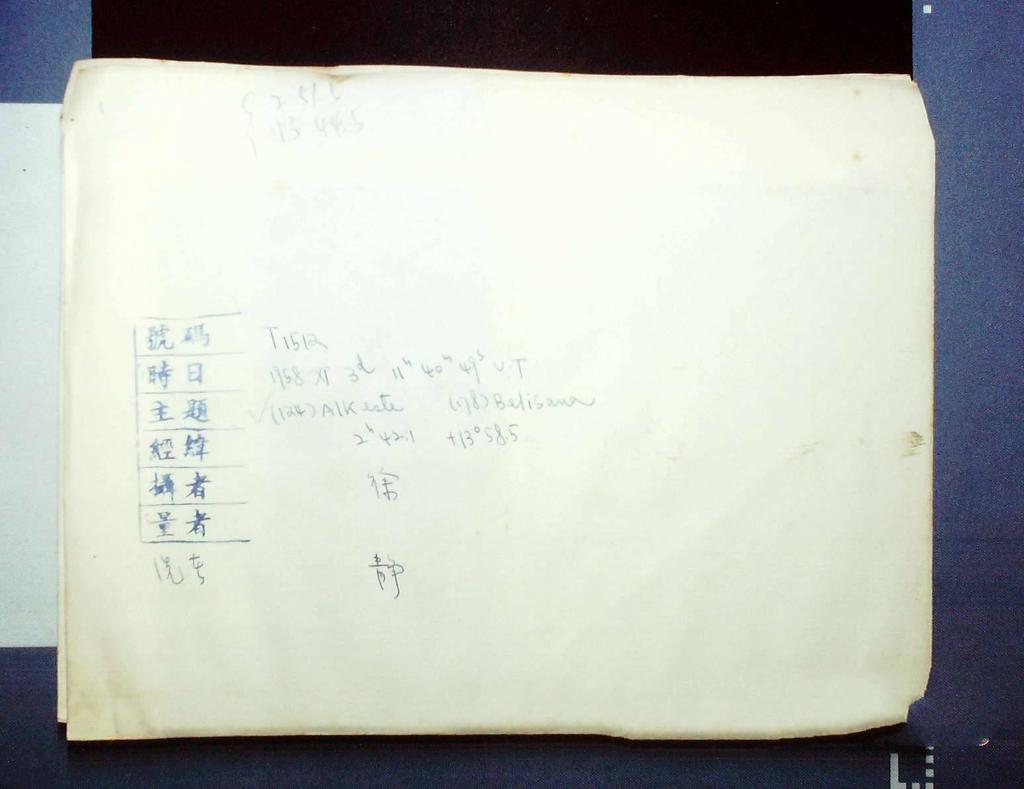 2 51.5
13 44.5
號碼 T1512
時日 1958 XI 3ᵈ 11ʰ 40ᵐ 49ˢ U.T
主題 (124) AlKeste (178) Belisana
經緯 2ʰ 42.1 +13° 58.5
攝者 徐
量者
靜